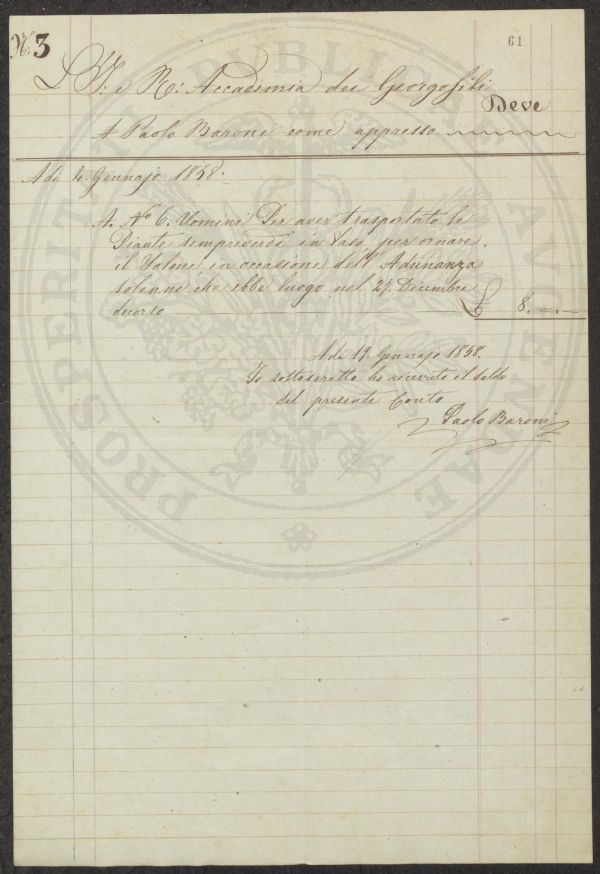 N: 3
61
L' I: e R: Accademia dei Georgofili
Deve
A Paolo Baroni come appresso
Adì 4. Gennajo 1858.
A. N° 6. Uomini Per aver trasportato le
Piante sempreverdi in Vaso, per ornare
il Salone in occasione dell' Adunanza
solenne che ebbe luogo nel 27. Dicembre
decorso
£ 8. —. —
Adì 19. Gennajo 1858.
Io sottoscritto ho ricevuto il saldo
del presente Conto
Paolo Baroni
PROSPERITATI PUBLICAE AUGENDAE